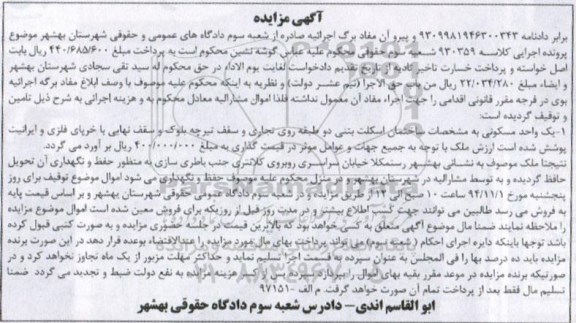 آگهی مزایده
برابر دادنامه ۹۳۰۹۹۸۱۹۴۶۳۰۰۳۴۳ و پیرو آن مفاد برگ اجرائیه صادره از شعبه سوم دادگاه های عمومی و حقوقی شهرستان بهشهر موضوع
پرونده اجرایی کلاسه ۹۳۰۳۵۹ شعبه سوم حقوقی محکوم علیه عباس گوشه نشین محکوم است به پرداخت مبلغ ۴۴۰/۶۸۵/۶۰۰ ریال بابت
اصل خواسته و پرداخت خسارت تاخیر تادیه از تاریخ تقدیم دادخواست لغایت یوم الاداء در حق محکوم له سید تقی سجادی شهرستان بهشهر
و ایضاء مبلغ ۲۲/۰۳۴/۲۸۰ ریال من باب حق الاجرا (نیم عشر دولت) و نظریه به اینکه محکوم علیه موصوف با وصف ابلاغ مفاد برگه اجرائیه
بوی در فرجه مقرر قانونی اقدامی را جهت اجراء مفاد آن معمول نداشته فلذا اموال مشارالیه معادل محکوم به و هزینه اجرائی به شرح ذیل تامین
و توقیف گردیده است:
۱-یک واحد مسکونی به مشخصات ساختمان اسکلت بتنی دو طبقه روی تجاری و سقف تیرچه بلوک و سقف نهایی با خرپای فلزی و ایرانیت
پوشش شده است ارزش ملک با توجه به جمیع جهات و عوامل موثر در قیمت گذاری به مبلغ ۴۰۰/۰۰۰/۰۰۰ ریال بر آورد می گردد.
نتیجتا ملک موصوف به نشانی بهشهر رستمکلا خیابان سراسری روبروی کلانتری جنب باطری سازی به منظور حفظ و نگهداری آن تحویل
حافظ گردیده و به توسط مشارالیه در شهرستان بهشهر در منزل محکوم علیه موصوف حفظ و نگهداری می شود اموال موضوع توقیف برای روز
پنجشنبه مورخ ۹۴/۱۱/۱ ساعت ۱۰ صبح الی طریق مزایده و در شعبه سوم دادگاه عمومی حقوقی شهرستان بهشهر و بر اساس قیمت پایه
به فروش می رسد طالبین می توانند جهت کسب اطلاع بیشتر و در مدت روز قبل از روزیکه برای فروش معین شده است اموال موضوع مزایده
را ملاحظه نمایند ضمنا مال موضوع آگهی متعلق به کسی خواهد بود که بالاترین قیمت در جلسه حضوری مزایده و به صورت کتبی قبول کرده
باشد توجها باینکه دایره اجرای احکام (شعبه سوم) می تواند پرداخت بهای مال مورد مزایده را عندالاقتضاء بوعده قرار دهد در این صورت برنده
مزایده باید ده درصد بها را فی المجلس به عنوان سپرده به قسمت اجرا تسلیم نماید و حداکثر مهلت مزبور از یک ماه تجاوز نخواهد کرد و در
صورتیکه برنده مزایده در موعد مقرر بقیه بهای اموال را نپردازد سپرده هزینه مزایده به نفع دولت ضبط و تجدید می گردد ضمنا
تسلیم مال فقط بعد از پرداخت تمام آن صورت خواهد گرفت. م الف -۹۷۱۵۱
ابو القاسم اندی- دادرس شعبه سوم دادگاه حقوقی بهشهر